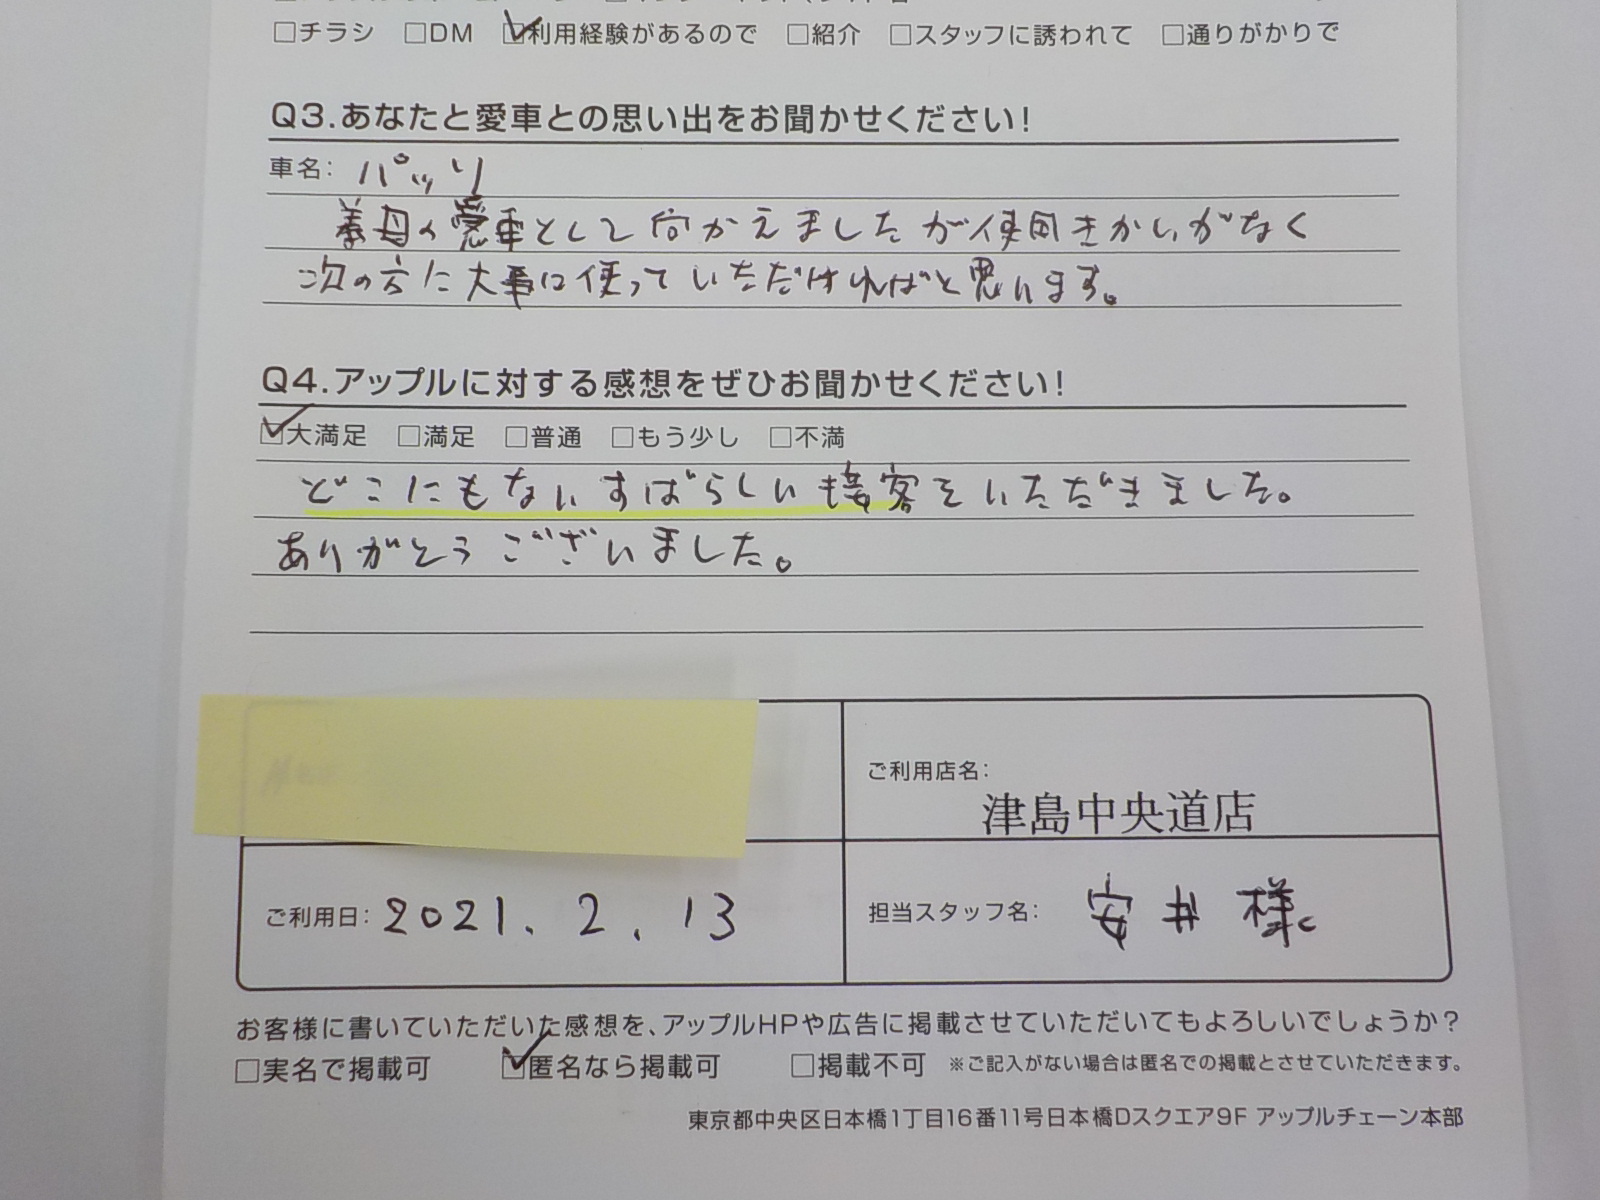 □チラシ □DM ☑利用経験があるので □紹介 □スタッフに誘われて □通りがかりで
Q3.あなたと愛車との思い出をお聞かせください!
車名: パッソ
義母の愛車として向かえましたが使用きかいがなく
次の方に大事に使っていただければと思います。
Q4.アップルに対する感想をぜひお聞かせください!
☑大満足 □満足 □普通 □もう少し □不満
どこにもないすばらしい接客をいただきました。
ありがとうございました。
ご利用店名:
津島中央道店
ご利用日: 2021. 2. 13
担当スタッフ名: 安井様
お客様に書いていただいた感想を、アップルHPや広告に掲載させていただいてもよろしいでしょうか?
□実名で掲載可 ☑匿名なら掲載可 □掲載不可 ※ご記入がない場合は匿名での掲載とさせていただきます。
東京都中央区日本橋1丁目16番11号日本橋Dスクエア9F アップルチェーン本部